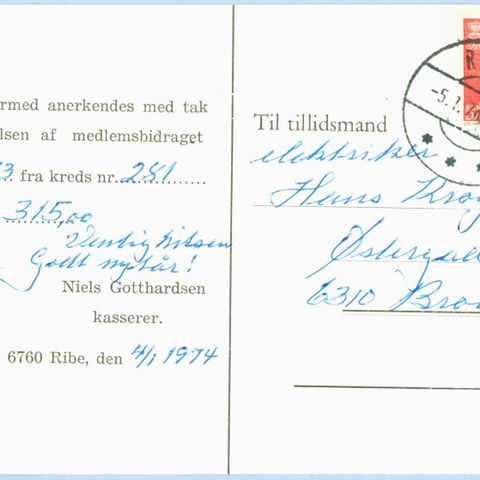 ermed anerkendes med tak
lsen af medlemsbidraget
3 fra kreds nr. 281
315,00
Venlig hilsen
Godt nytår!
Niels Gotthardsen
kasserer.
6760 Ribe, den 4/1 1974
R
-5.1.
Til tillidsmand
elektriker
Hans Kro
Østerga
6310 Bro